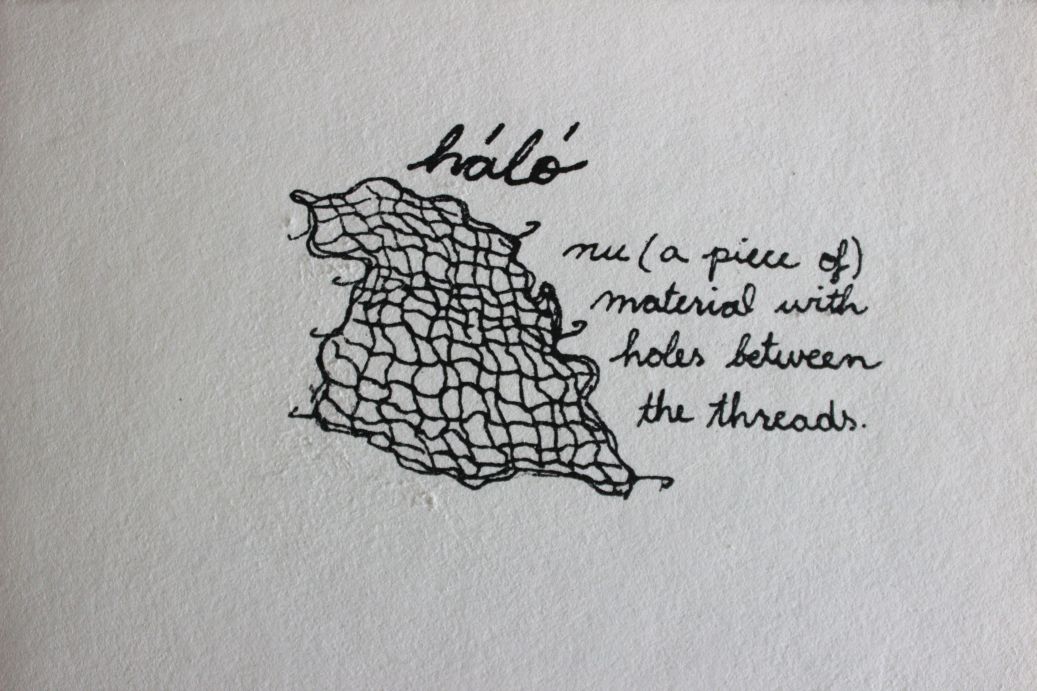 háló
nu (a piece of)
material with
holes between
the threads.